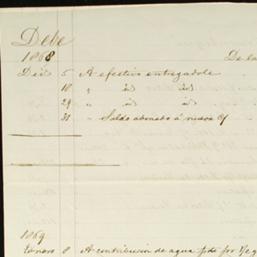 Debe
1868 De la
Dic 5 A efectivo entregadole
18 " id id
24 " id id
31 " Saldo abonado á nueva c/
1869
Enero 8 A contribucion de agua pdo por